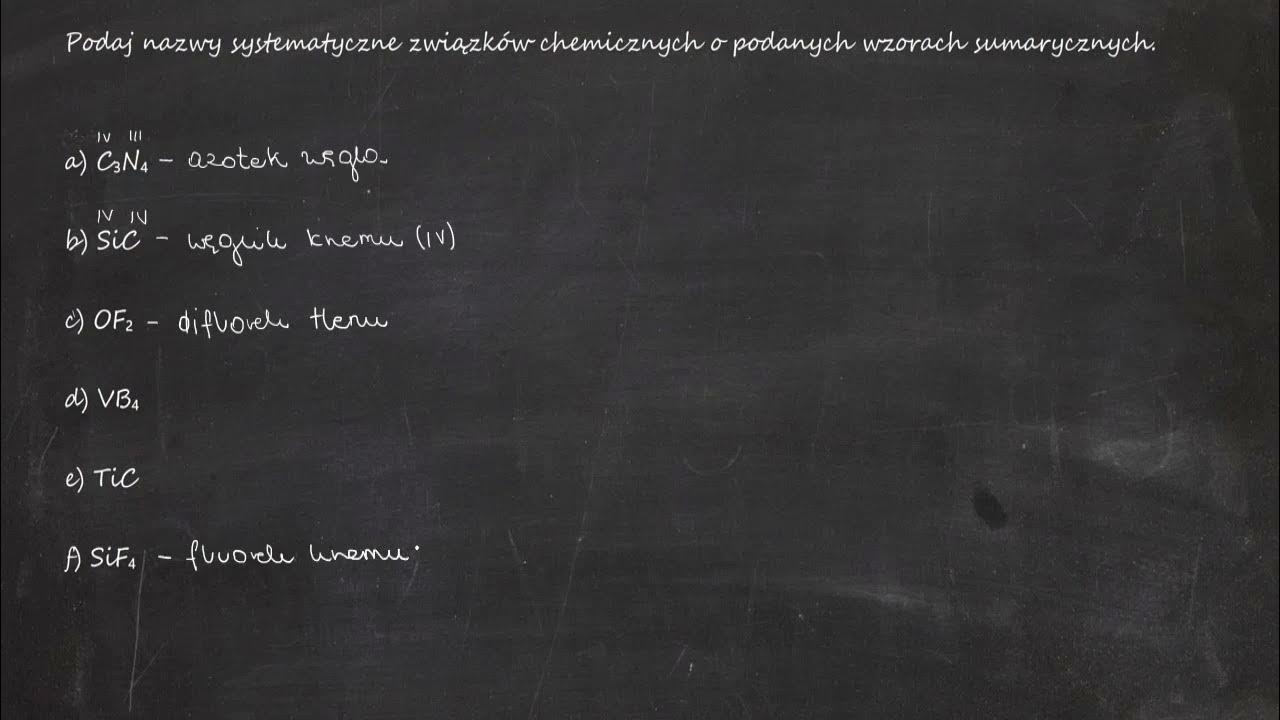 Podaj nazwy systematyczne związków chemicznych o podanych wzorach sumarycznych.
IV III
a) C₃N₄ – azotek węglo
IV IV
b) SiC – węglik krzemu (IV)
c) OF₂ – difluorek tlenu
d) VB₄
e) TiC
f) SiF₄ – fluorek krzemu